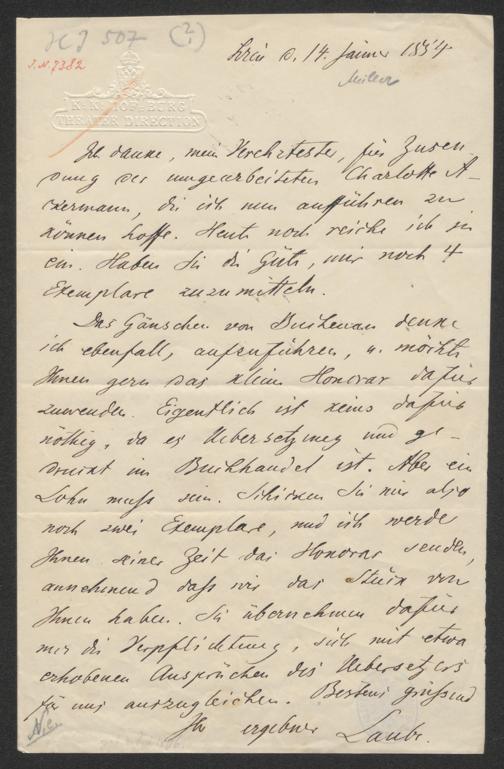 HJ 507 (2/1)
J.N. 7382
K. K. HOF-BURG
THEATER DIRECTION
d. 14. Jänner 1854
Ich danke, mein Verehrtester, für Zusen-
dung der umgearbeiteten Charlotte A-
ckermann, die ich nun aufführen zu
können hoffe. Heute noch reiche ich sie
ein. Haben Sie die Güte, mir noch 4
Exemplare zuzumitteln.
Das Gänschen von Buchenau denke
ich ebenfalls aufzuführen, u. möchte
Ihnen gern das kleine Honorar dafür
zuwenden. Eigentlich ist keins dafür
nöthig, da es Uebersetzung und ge-
druckt im Buchhandel ist. Aber ein
Lohn muß sein. Schicken Sie mir also
noch zwei Exemplare, und ich werde
Ihnen seiner Zeit das Honorar senden,
annehmend daß wir das Stück von
Ihnen haben. Sie übernehmen dafür
nur die Verpflichtung, sich mit etwa
erhobenen Ansprüchen des Uebersetzers
für uns auszugleichen. Bestens grüßend
Ihr ergebner Laube.